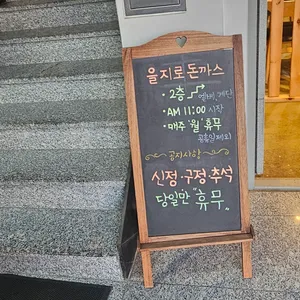 을지로돈까스
• 2층 옆계단
• AM 11:00 시작
• 매주 '월' 휴무
공휴일제외
공지사항
신정·구정·추석
당일만 "휴무"